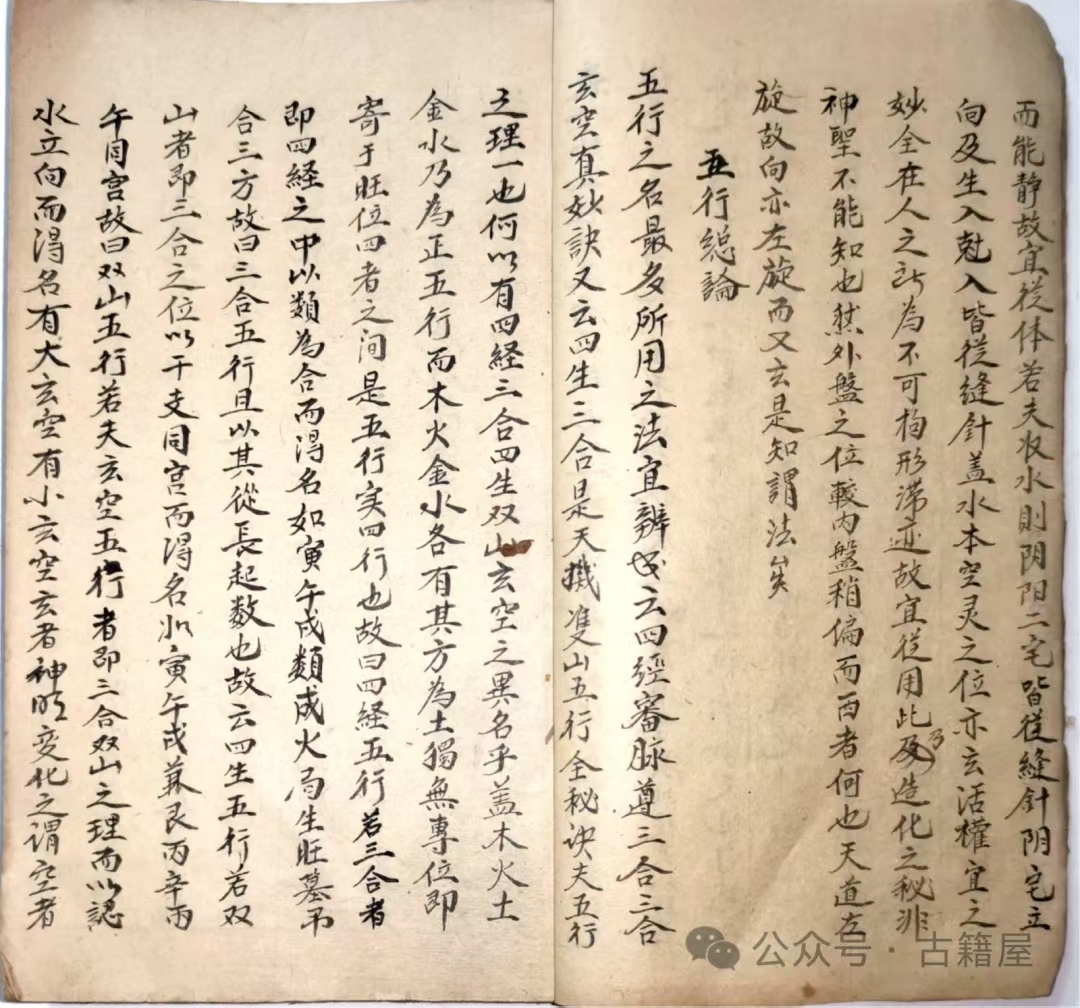 而能静故宜從体若夫収水則阴阳二宅皆從縫針阴宅立
向及生入尅入皆從縫針盖水本空灵之位亦玄活權宜之
妙全在人之所為不可拘形滞迹故宜從用此乃造化之秘非
神聖不能知也然外盤之位較内盤稍偏而西者何也天道左
旋故向亦左旋而又玄是知謂法矣
五行総論
五行之名最多所用之法宜辨或云四經審脉遵三合三合
玄空真妙訣又云四生三合是天機双山五行全秘诀夫五行
之理一也何以有四経三合四生双山玄空之異名乎盖木火土
金水乃為正五行而木火金水各有其方為土獨無專位即
寄于旺位四者之间是五行实四行也故曰四経五行若三合者
即四経之中以類為合而得名如寅午戌類成火局生旺墓吊
合三方故曰三合五行且以其從長起数也故云四生五行若双
山者即三合之位以干支同宫而得名如寅午戌兼艮丙辛丙
午同宫故曰双山五行若夫玄空五行者即三合双山之理而以認
水立向而得名有大玄空有小玄空玄者神明变化之謂空者
公众号·古籍屋